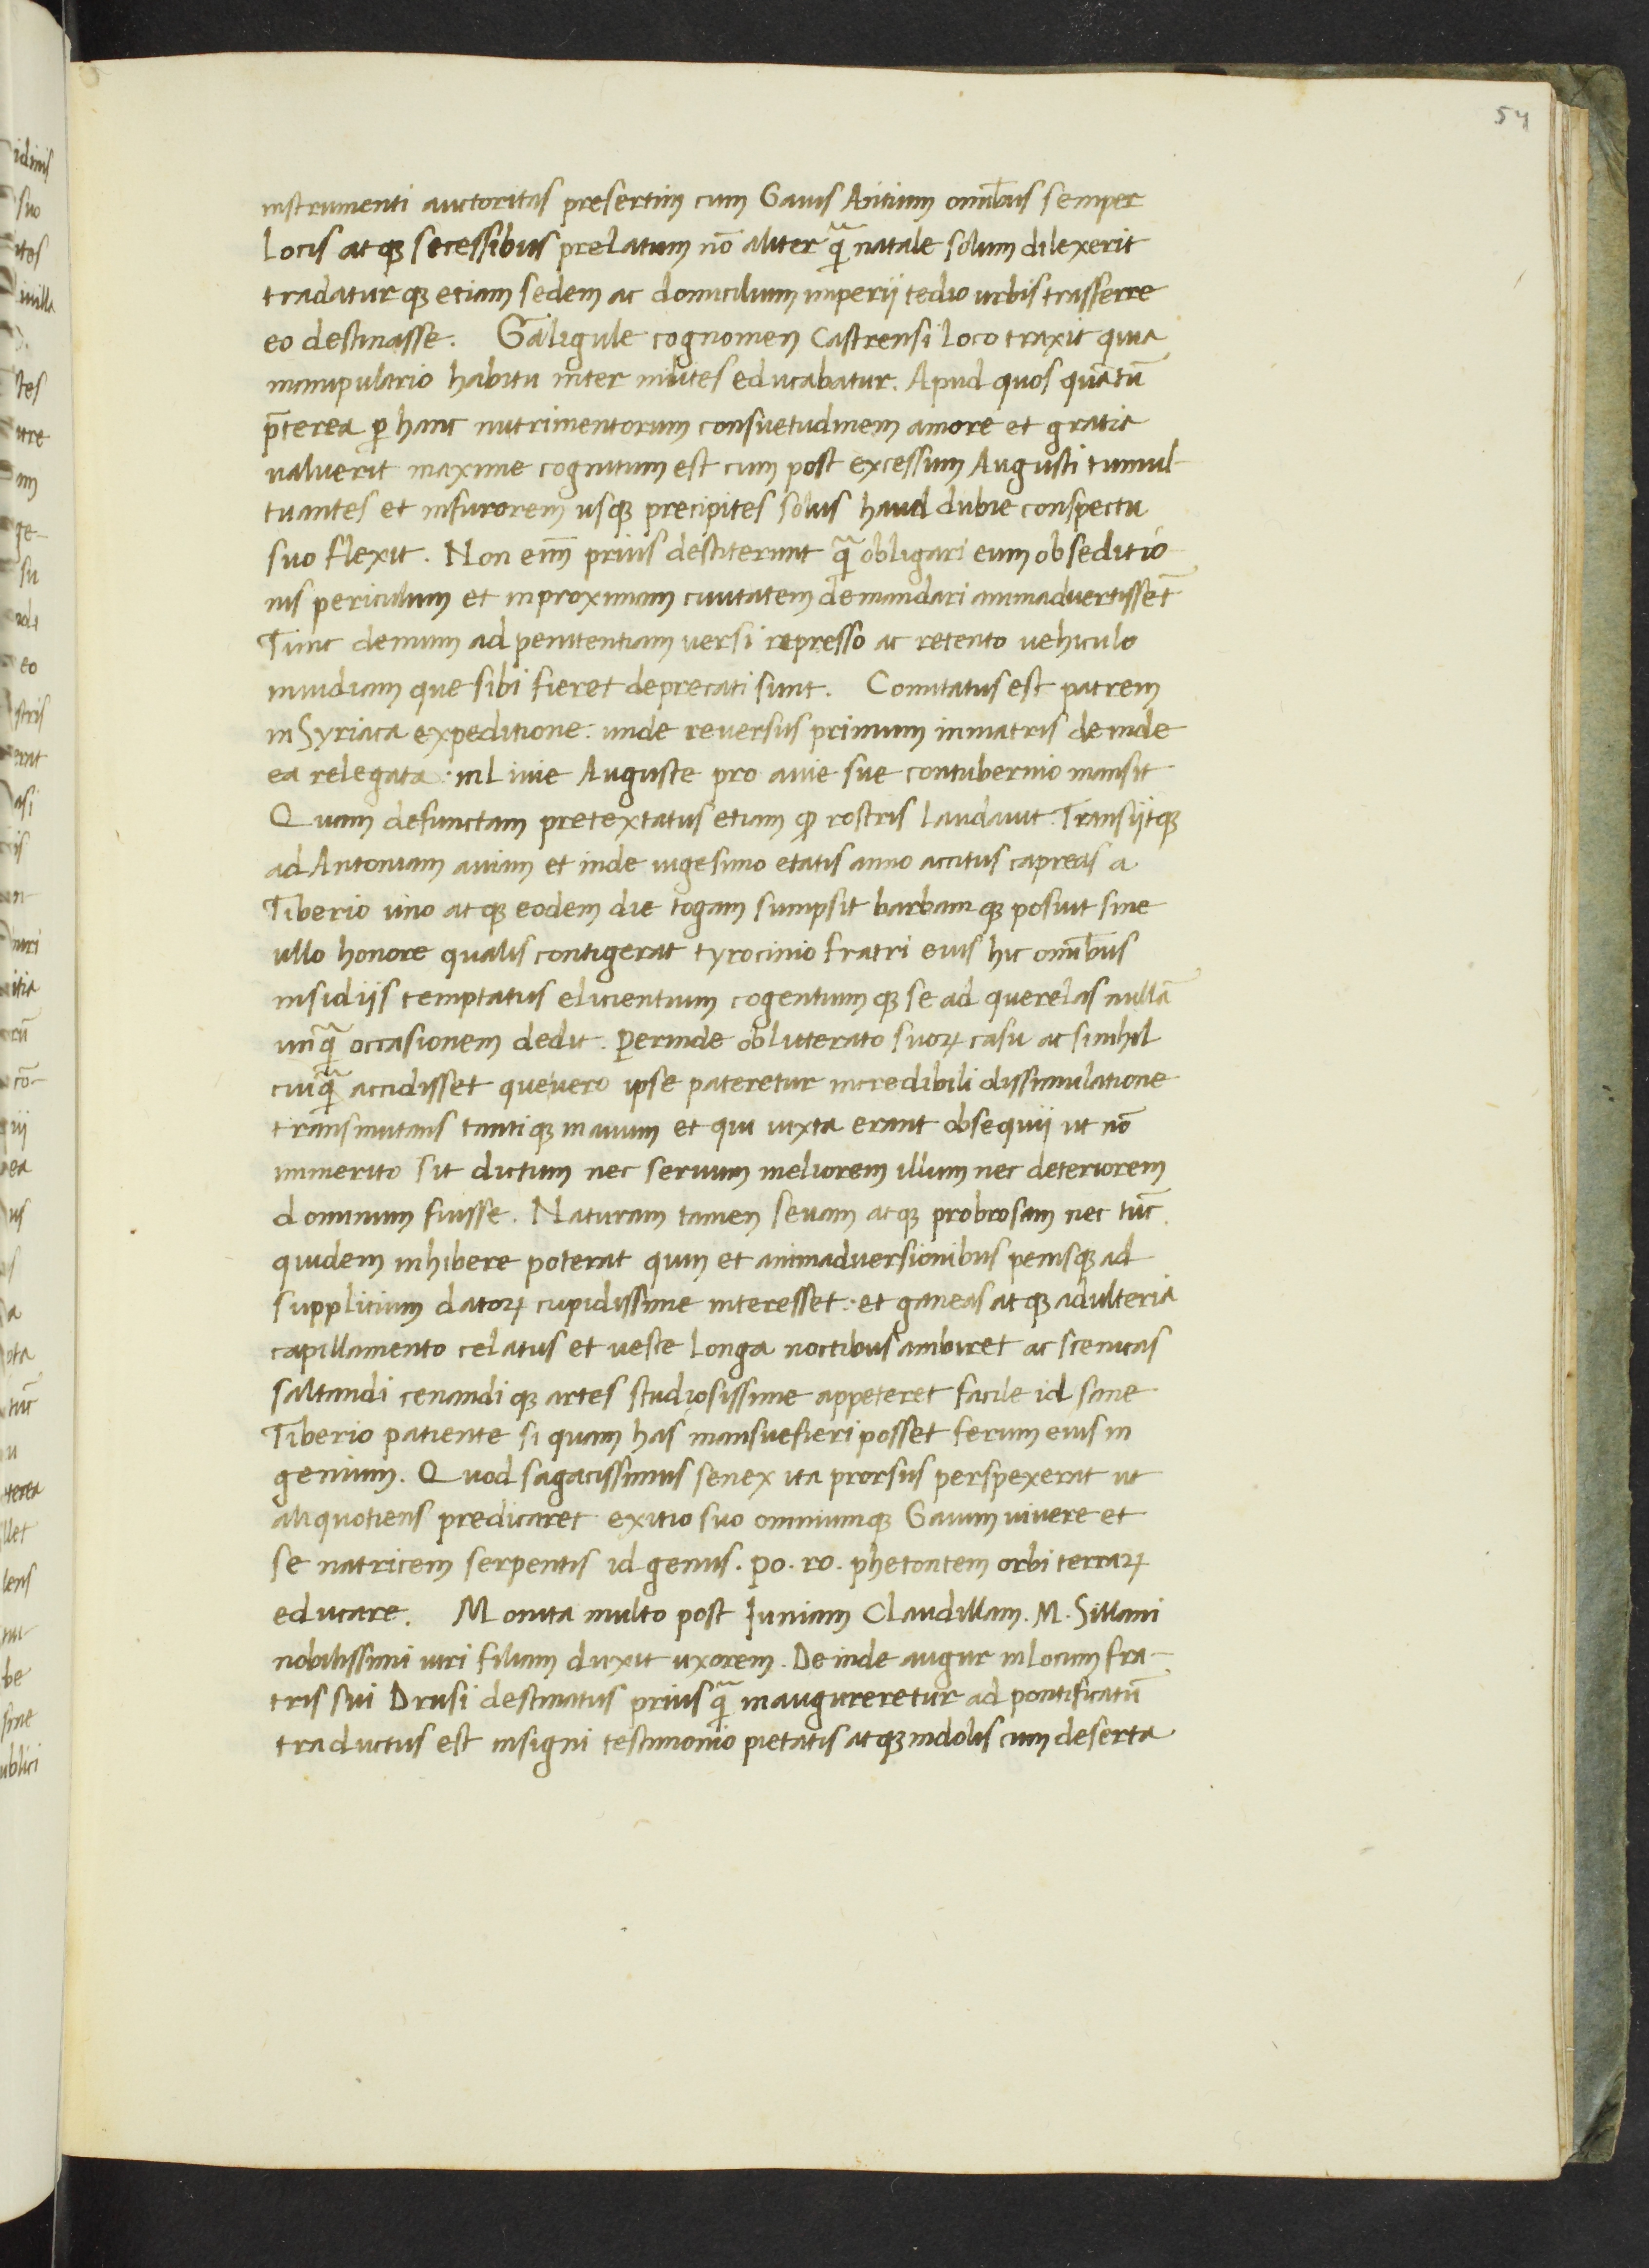 54
instrumenti auctoritas presertim cum Gaius Antium omībus semper
locis atqꝫ secessibus prelatum nō aliter qᷓ natale solum dilexerit
tradaturqꝫ etiam sedem ac domicilium imperij tedio urbis trasferre
eo destinasse. Galigule cognomen Castrensi loco traxit quia
manipulario habitu inter milites educabatur. Apud quos quātū
p̄terea ꝑ hanc nutrimentorum consuetudinem amore et gratia
ualuerit maxime cognitum est cum post excessum Augusti tumul-
tuantes et infurorem usqꝫ precipites solus haud dubie conspectu
suo flexit. Non eim̄ prius destiterunt qᷓ obligari eum obseditio
nis periculum et inproximam ciuitatem demandari animaduertissēt
Tunc demum ad penitentiam uersi represso ac retento uehiculo
inuidiam que sibi fieret deprecati sunt. Comitatus est patrem
in Syriaca expeditione: unde reuersus primum inmatris deinde
ea relegata: inLiuie Auguste pro auie sue contubernio mansit
Quam defunctam pretextatus etiam ꝓ rostris laudauit. Transijtqꝫ
ad Antoniam auiam et inde uigesimo etatis anno accitus capreas a
Tiberio uno atqꝫ eodem die togam sumpsit barbamqꝫ posuit sine
ullo honore qualis contigerat tyrocinio fratri eius hic omībus
insidijs temptatus elicientium cogentiumqꝫ se ad querelas nullā
unqᷓ occasionem dedit. Perinde obliterato suoꝝ casu ac sinihil
cuiqᷓ accidisset queuero ipse pateretur incredibili dissimulatione
transmutans tantiqꝫ inauum et qui iuxta erant obsequij ut nō
immerito sit dictum nec seruum meliorem illum nec deteriorem
dominum fuisse. Naturam tamen seuam atqꝫ probrosam nec tūc
quidem inhibere poterat quin et animaduersionibus penisqꝫ ad
supplicium datoꝝ cupidissime interesset: et ganeas atqꝫ adulteria
capillamento celatus et ueste longa noctibus ambiret ac scenicas
saltandi cenandiqꝫ artes studiosissime appeteret facile id sane
Tiberio patiente si quam has mansuefieri posset ferum eius in
genium. Quod sagacissimus senex ita prorsus perspexerat ut
aliquotiens predicaret exitio suo omniumqꝫ Gaium uiuere et
se natricem serpentis id genus. po. ro. phetontem orbi terraꝝ
educare. Monita multo post Iuniam Claudillam. M. Sillani
nobilissimi uiri filiam duxit uxorem. Deinde augur inlocum fra-
tris sui Drusi destinatus priusqᷓ inaugureretur ad pontificatū
traductus est insigni testimonio pietatis atqꝫ indolis cum deserta